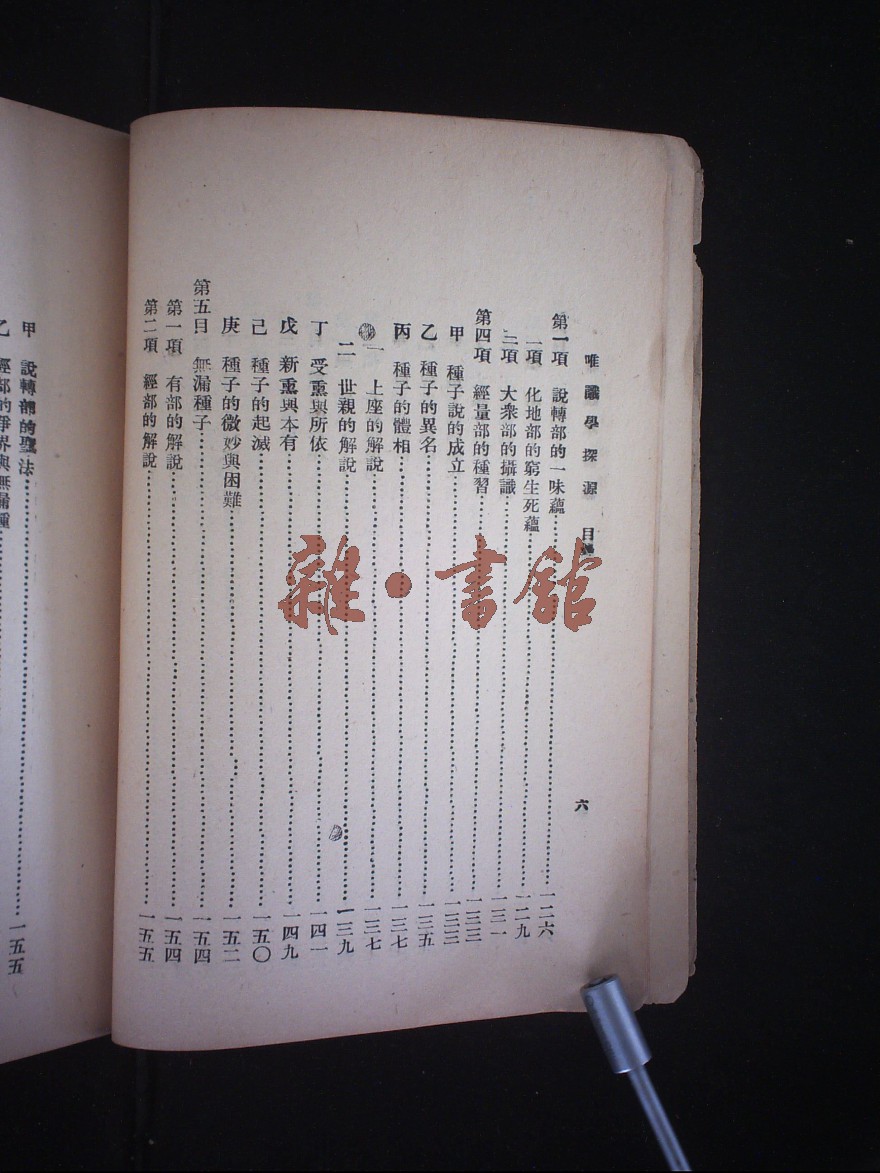 唯識學探源 目
六
第一項 說轉部的一味蘊 一二六
二項 化地部的窮生死蘊 一二九
三項 大衆部的攝識 一三一
第四項 經量部的種習 一三三
甲 種子說的成立 一三三
乙 種子的異名 一三五
丙 種子的體相 一三七
一 上座的解說 一三七
二 世親的解說 一三九
丁 受熏與所依 一四一
戊 新熏與本有 一四九
己 種子的起滅 一五〇
庚 種子的微妙與困難 一五二
第五目 無漏種子 一五四
第一項 有部的解說 一五四
第二項 經部的解說 一五五
甲 說轉部的聖法 一五五
乙 經部的淨界與無漏種
雜·書館